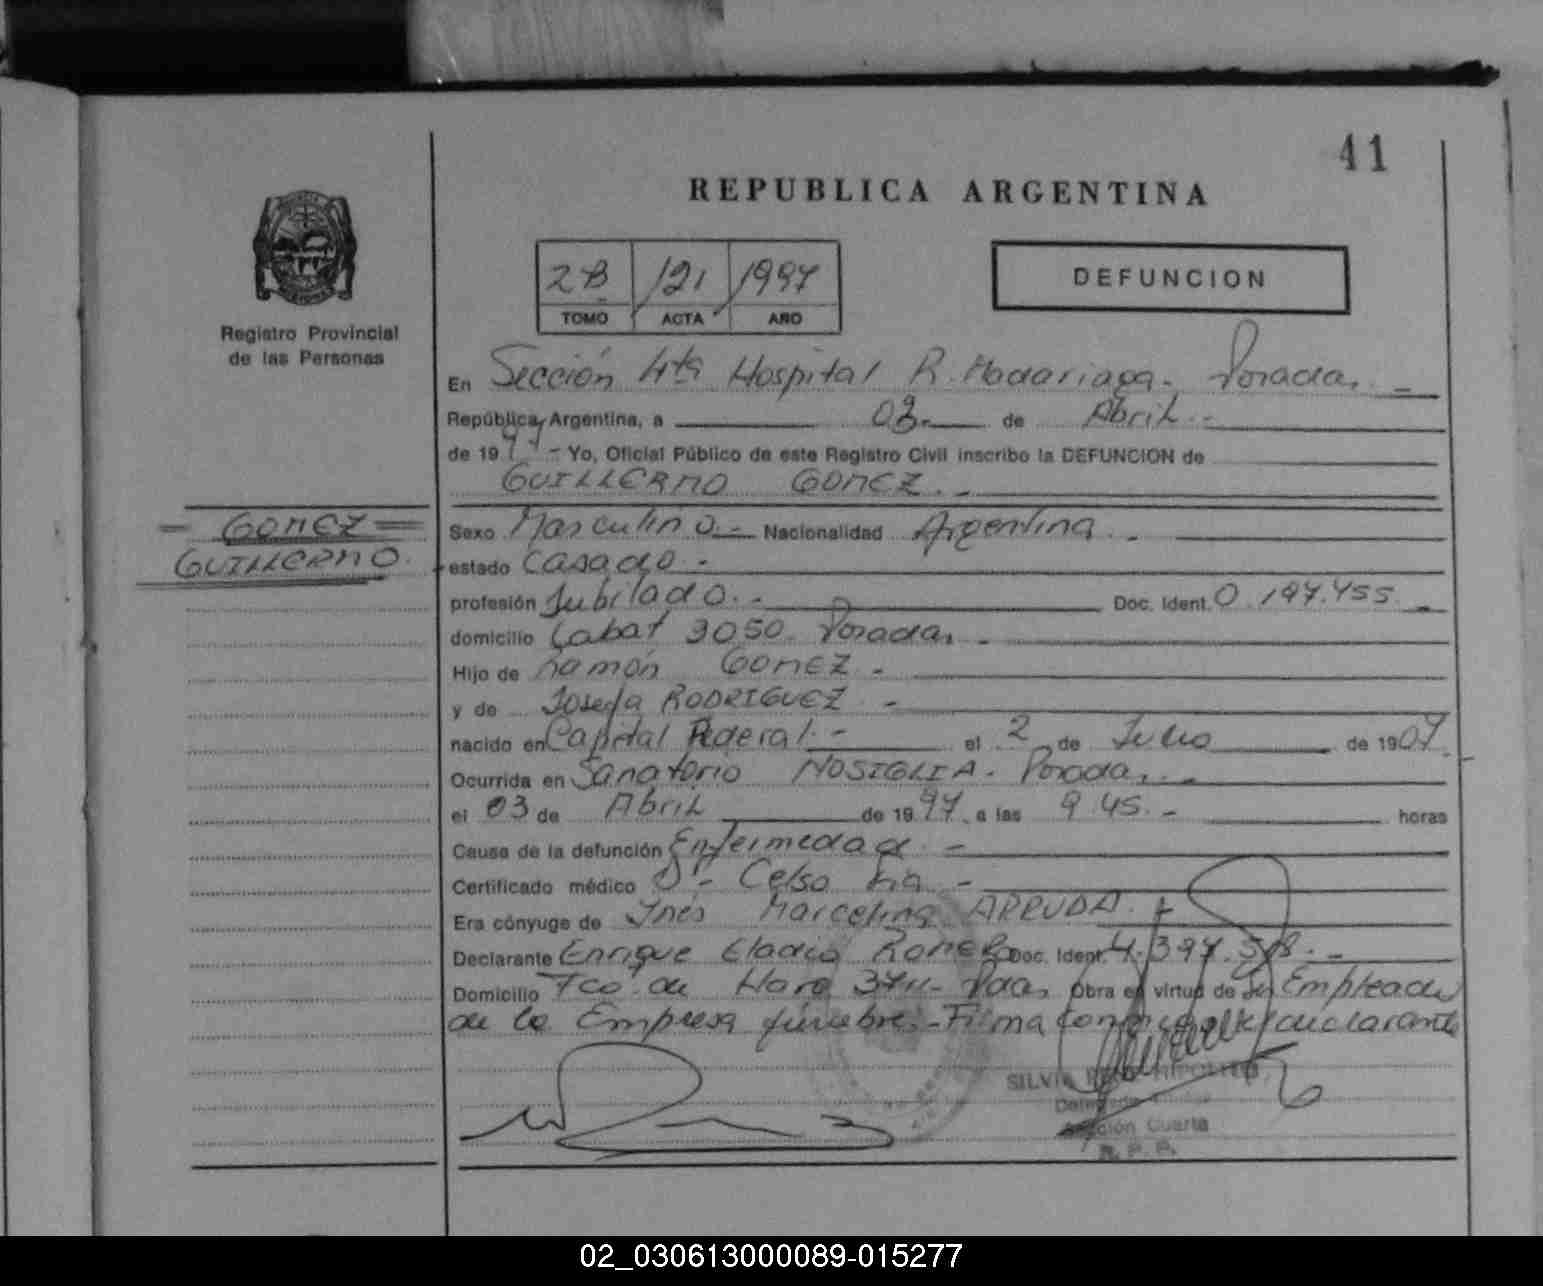 41
REPUBLICA ARGENTINA
2B 121 1997
TOMO ACTA AÑO
DEFUNCION
Registro Provincial
de las Personas
En Sección 4ta Hospital R. Madariaga - Posadas. -
República Argentina, a 03 - de Abril. -
de 1997 - Yo, Oficial Público de este Registro Civil inscribo la DEFUNCION de
GUILLERMO GOMEZ. -
= GOMEZ =
GUILLERMO.
Sexo Masculino. - Nacionalidad Argentina. -
estado Casado. -
profesión Jubilado. - Doc. Ident. 0.197.455. -
domicilio Labat 3050. Posadas. -
Hijo de Ramón GOMEZ. -
y de Josefa RODRIGUEZ. -
nacido en Capital Federal. - el 2 de Julio de 1907.
Ocurrida en Sanatorio NOSIGLIA - Posadas. -
el 03 de Abril de 1997 a las 9.45. - horas
Causa de la defunción Enfermedad. -
Certificado médico Dr. Celso -
Era cónyuge de Ynés Marcelina ARRUDA. -
Declarante Enrique Eladio ROMERO Doc. Ident. 4.397. -
Domicilio Fco. de Haro Pdas. Obra en virtud de Empleado
de la Empresa fúnebre. - Firma conmigo el declarante
SILVIA
Delegada
Sección Cuarta
R. P. P.
02_030613000089-015277